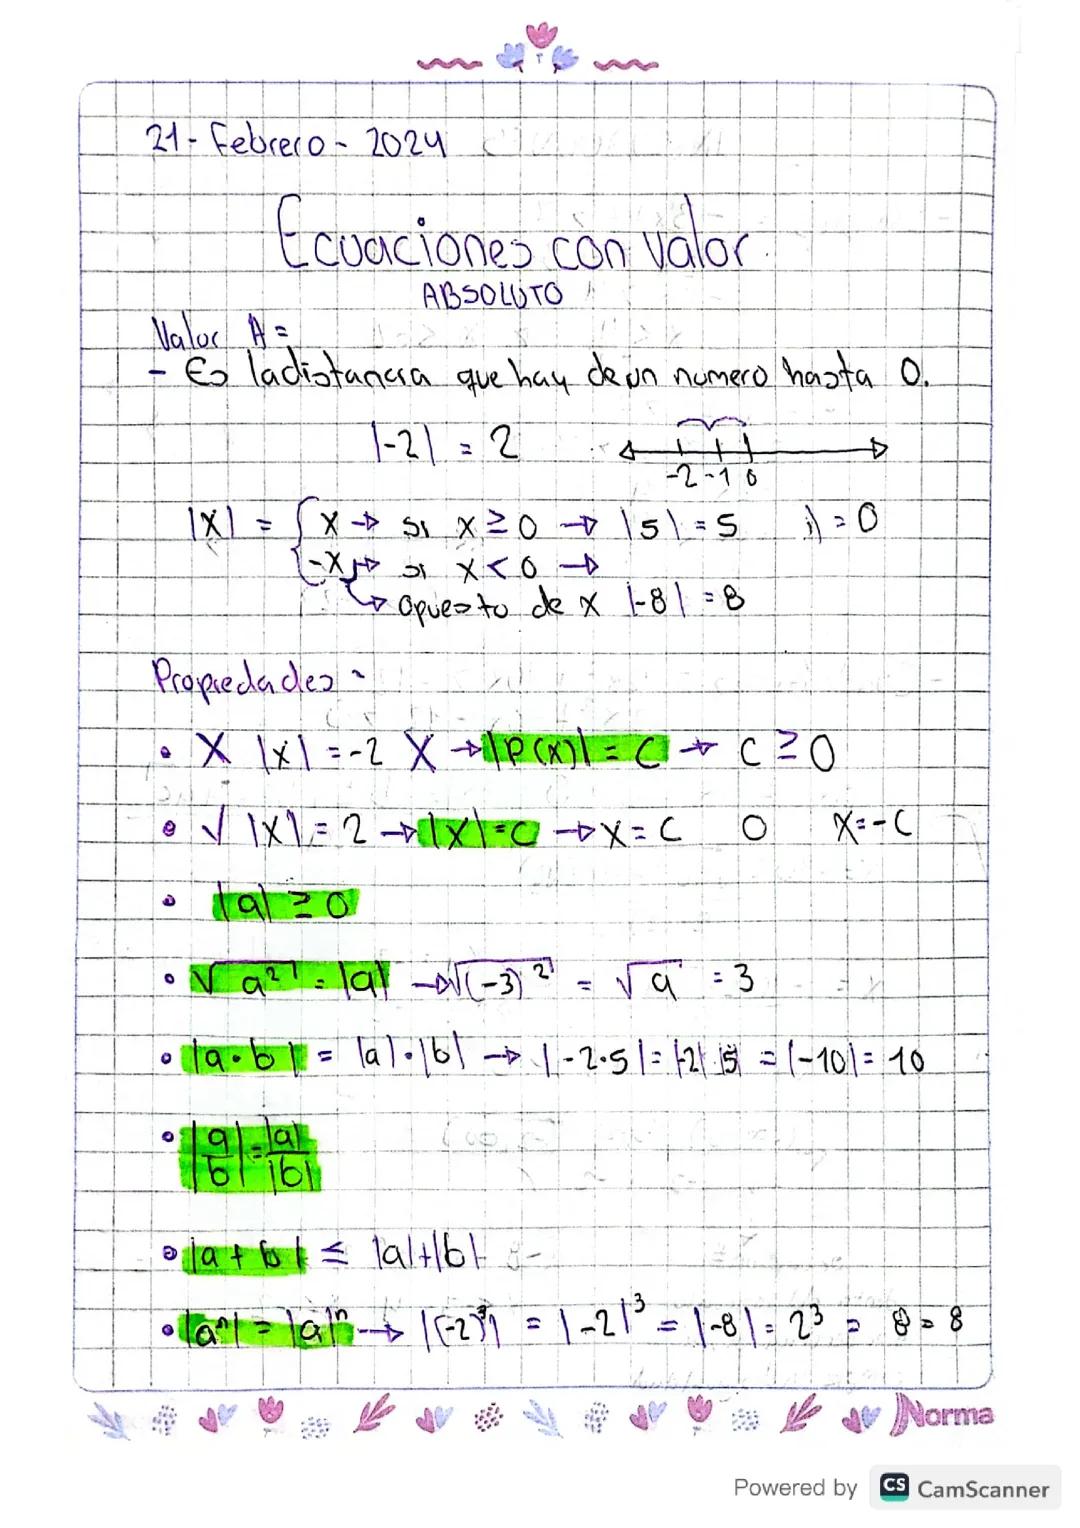 21- Febrero - 2024
Ecuaciones con valor
ABSOLUTO
Valor A =
- Es la distancia que hay de un numero hasta 0.
|-2| = 2
-2 -1 0
|X| = { X → si X ≥ 0 → |5| = 5 = 0
-X → si X < 0 →
↳ opuesto de X |-8| = 8
Propiedades -
• X |x| = -2 X → |P(X)| = C → C ≥ 0
• √ |X| = 2 → |X| = C → X = C O X = -C
• |a| ≥ 0
• √a² = |a| → √(-3)² = √9 = 3
• |a·b| = |a|·|b| → |-2·5| = |-2| |5| = |-10| = 10
• |a/b| = |a|/|b|
• |a + b| ≤ |a|+|b|
• |aⁿ| = |a|ⁿ → |(-2)³| = |-2|³ = |-8| = 2³ = 8 = 8
Norma
Powered by CS CamScanner